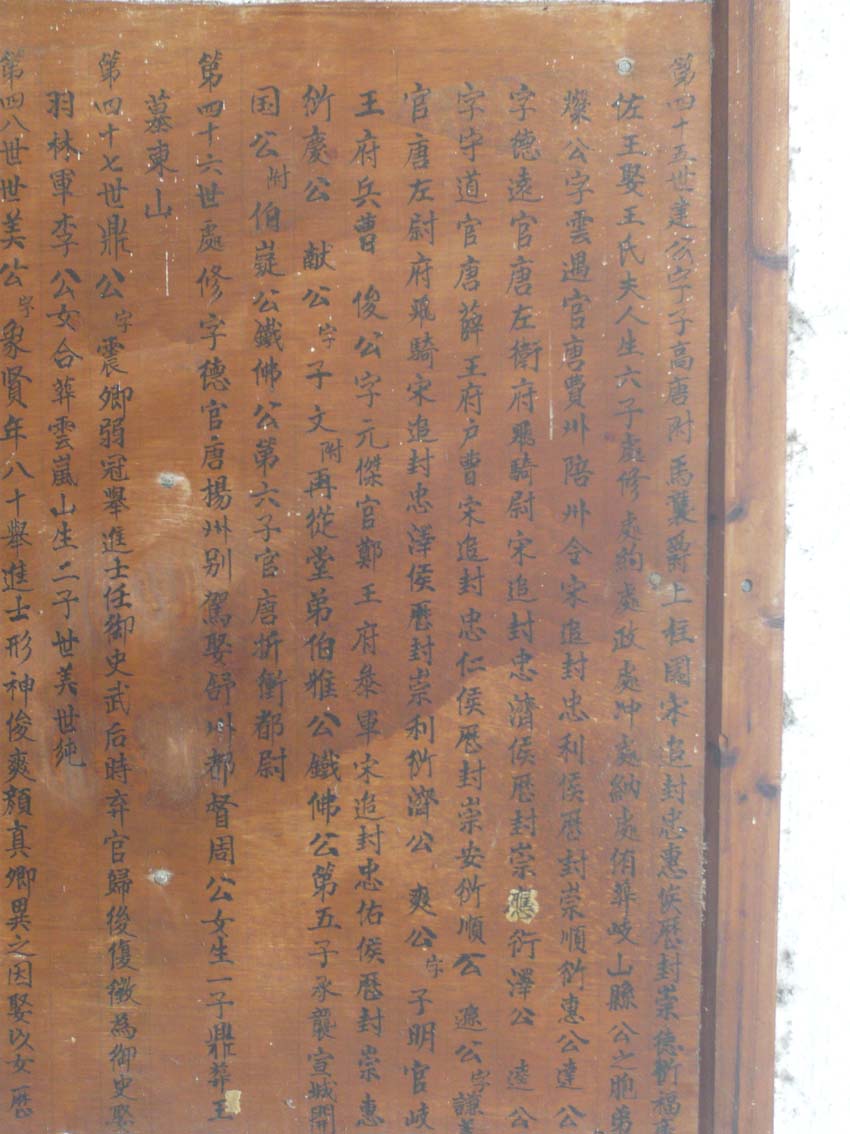 第四十五世建公字子高唐附馬襲爵上柱國宋追封忠惠侯歷封崇德衍福
佐王娶王氏夫人生六子處修處鈞處政處冲處納處侑葬岐山縣公之胞弟
燦公字雲遇官唐費州陪州令宋追封忠利侯歷封崇順衍惠公達公
字德遠官唐左衛府飛騎尉宋追封忠濟侯歷封崇應衍澤公 逵公
字守道官唐薛王府户曹宋追封忠仁侯歷封崇安衍順公 遜公字謙
官唐左尉府飛騎宋追封忠澤侯歷封崇利衍濟公 爽公字子明官岐
王府兵曹 俊公字元傑官鄭王府叅軍宋追封忠佑侯歷封崇惠
衍慶公 献公字子文附再從堂弟伯雅公鐵佛公第五子承襲宣城開
国公附伯嶷公鐵佛公第六子官唐折衝都尉
第四十六世處修字德官唐揚州别駕娶舒州都督周公女生一子鼎葬王
墓東山
第四十七世鼎公字震卿弱冠舉進士任御史武后時弃官歸後復徵為御史娶
羽林軍李公女合葬雲嵐山生二子世美世純
第四八世世美公字象賢年八十舉進士形神俊爽顏真卿異之因娶以女歷